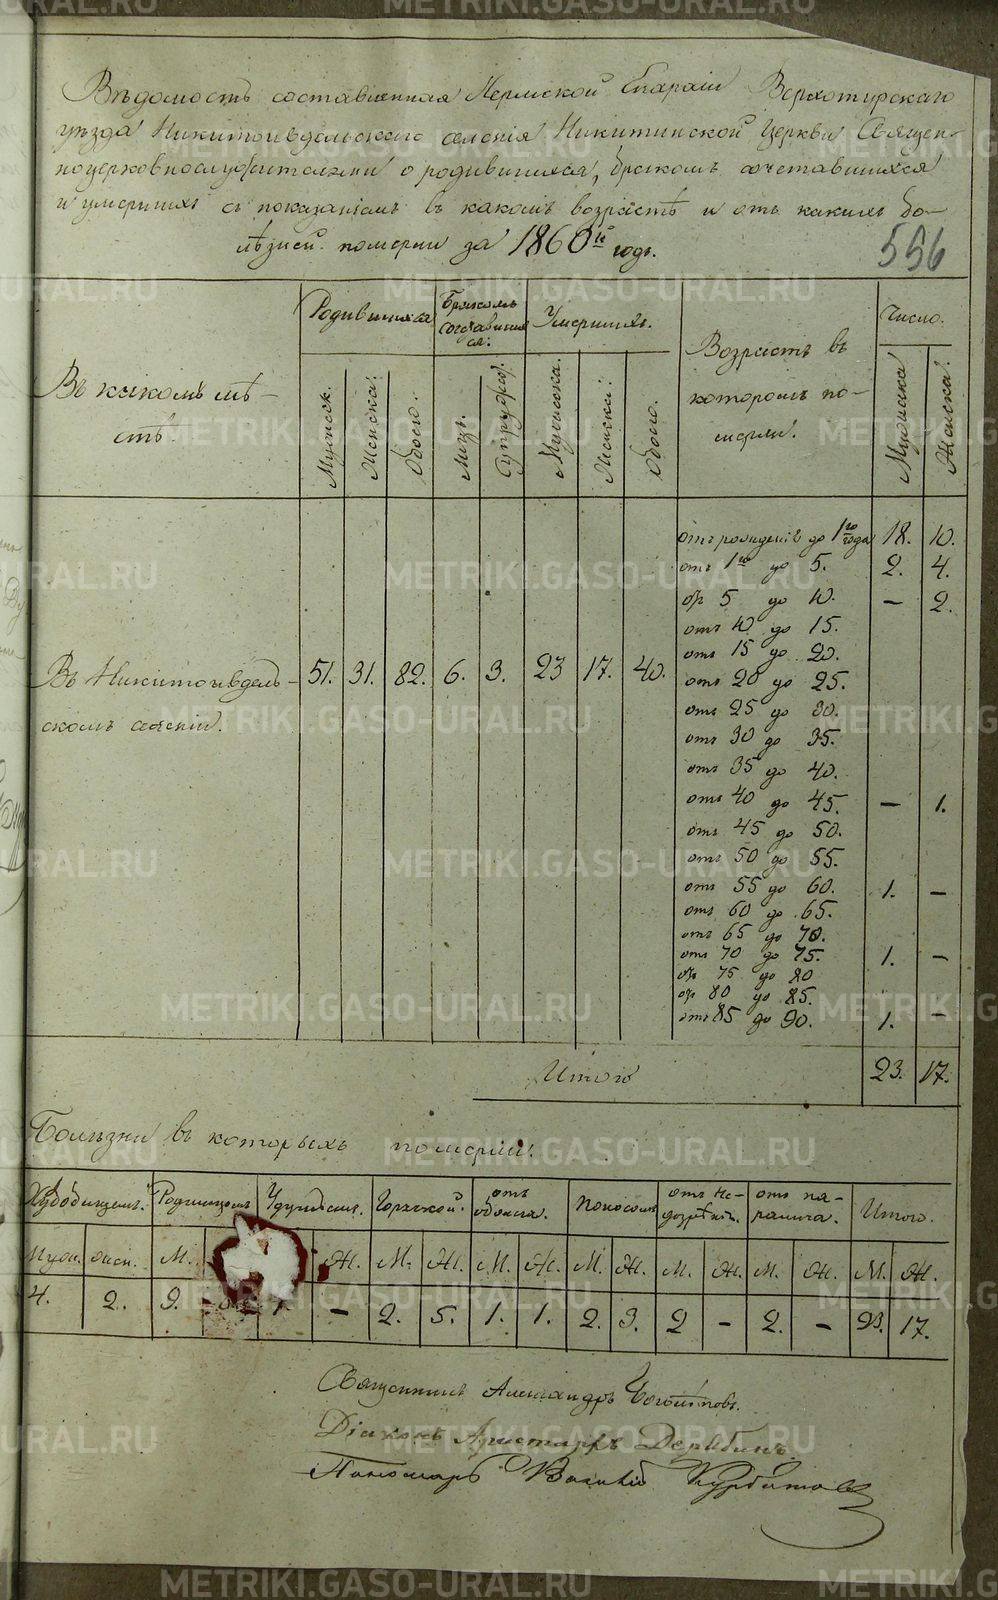 Вѣдомость составленная Пермской Епархіи Верхотурскаго
уѣзда Никитоивдельскаго селенія Никитинской Церкви Священ-
ноцерковнослужителями о родившихся, бракомъ сочетавшихся
и умершихъ съ показаніемъ въ какомъ возрастѣ и отъ какихъ бо-
лѣзней померли за 1860й годъ.
556
Въ какомъ мѣ-
стѣ.
Родившихся
Бракомъ
сочетавших
ся.
Умершихъ.
Возрастъ въ
которомъ по-
мерли.
Число.
Мужеск.
Женска.
Обоего.
Лицъ.
Супруж.
Мужеска.
Женска.
Обоего.
Мужеска
Женска.
Въ Никитоивдель-
скомъ селеніи.
51. 31. 82. 6. 3. 23 17. 40.
отъ рожденія до 1го года 18. 10.
отъ 1го до 5. 2. 4.
от 5 до 10. — 2.
отъ 10 до 15.
отъ 15 до 20.
отъ 20 до 25.
отъ 25 до 30.
отъ 30 до 35.
отъ 35 до 40.
отъ 40 до 45. — 1.
отъ 45 до 50.
отъ 50 до 55.
отъ 55 до 60. 1. —
отъ 60 до 65.
отъ 65 до 70.
отъ 70 до 75. 1. —
от 75 до 80
от 80 до 85.
отъ 85 до 90. 1. —
Итого 23. 17.
Болѣзни въ которыхъ померли.
Родимцомъ
Горячкой.
отъ
Поносомъ
отъ па-
ралича.
Итого.
Муж. жен. М. Ж. М. Ж. М. Ж. М. Ж. М. Ж. М. Ж. М. Ж.
4. 2. 9. 1 — 2. 5. 1. 1. 2. 3. 2 — 2. — 23. 17.
Священникъ Александръ
Діаконъ Аристархъ Дерябинъ
Пономарь Василій Курбатов
METRIKI.GASO-URAL.RU